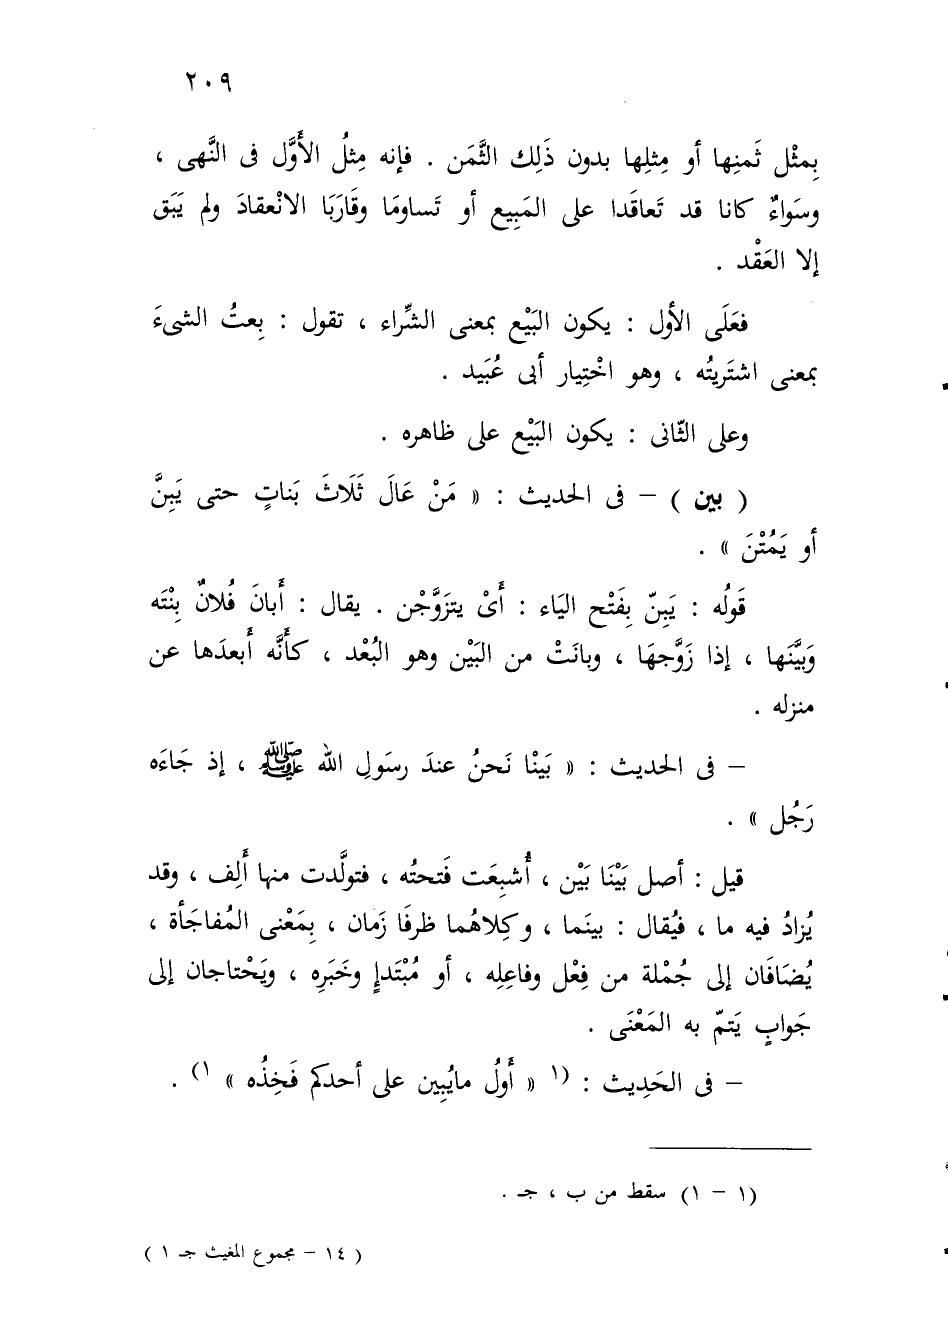 ٢٠٩
بِمثْل ثَمنِها أو مِثلِها بدون ذَلِك الثَّمَن . فإنه مِثلُ الأَوَّل فى النَّهى ،
وسَواءٌ كانا قد تَعاقَدا على المَبِيع أو تَساومَا وقَارَبَا الانْعقادَ ولم يَبَق
إلا العَقْد .
فعَلَى الأول : يكون البَيْع بمعنى الشِّراء ، تقول : بِعتُ الشىءَ
بمعنى اشتَريتُه ، وهو اخْتِيار أبى عُبَيد .
وعلى الثّانى : يكون البَيْع على ظاهره .
( بين ) – فى الحديث : « مَنْ عَالَ ثَلَاثَ بَناتٍ حتى يَبِنَّ
أو يَمُتْنَ » .
قَولُه : يَبِنّ بِفَتْح اليَاء : أَىْ يتزَوَّجْن . يقال : أَبانَ فُلانٌ بِنْتَه
وَبيَّنَها ، إذا زَوَّجهَا ، وبانَتْ من البَيْن وهو البُعْد ، كأَنَّه أَبعدَها عن
منزله .
– فى الحديث : « بَينْا نَحنُ عندَ رسَولِ الله ﷺ ، إذ جَاءَه
رَجُل » .
قيل : أصل بَيْنَا بَيْن ، أُشبِعَت فَتحتُه ، فتولَّدت منها أَلِف ، وقد
يُزادُ فيه ما ، فيُقال : بينَما ، وكِلاهُما ظرفَا زَمان ، بِمَعْنى المُفاجَأة ،
يُضَافَان إلى جُمْلة من فِعْل وفاعِلِه ، أو مُبْتَدإٍ وخَبَرِه ، ويَحْتاجان إلى
جَوابٍ يَتمّ به المَعْنَى .
– فى الحَدِيث : (١ « أَولُ مايُبِين على أحدكم فَخِذُه » ١) .
(١ – ١) سقط من ب ، جـ .
( ١٤ – مجموع المغيث جـ ١ )